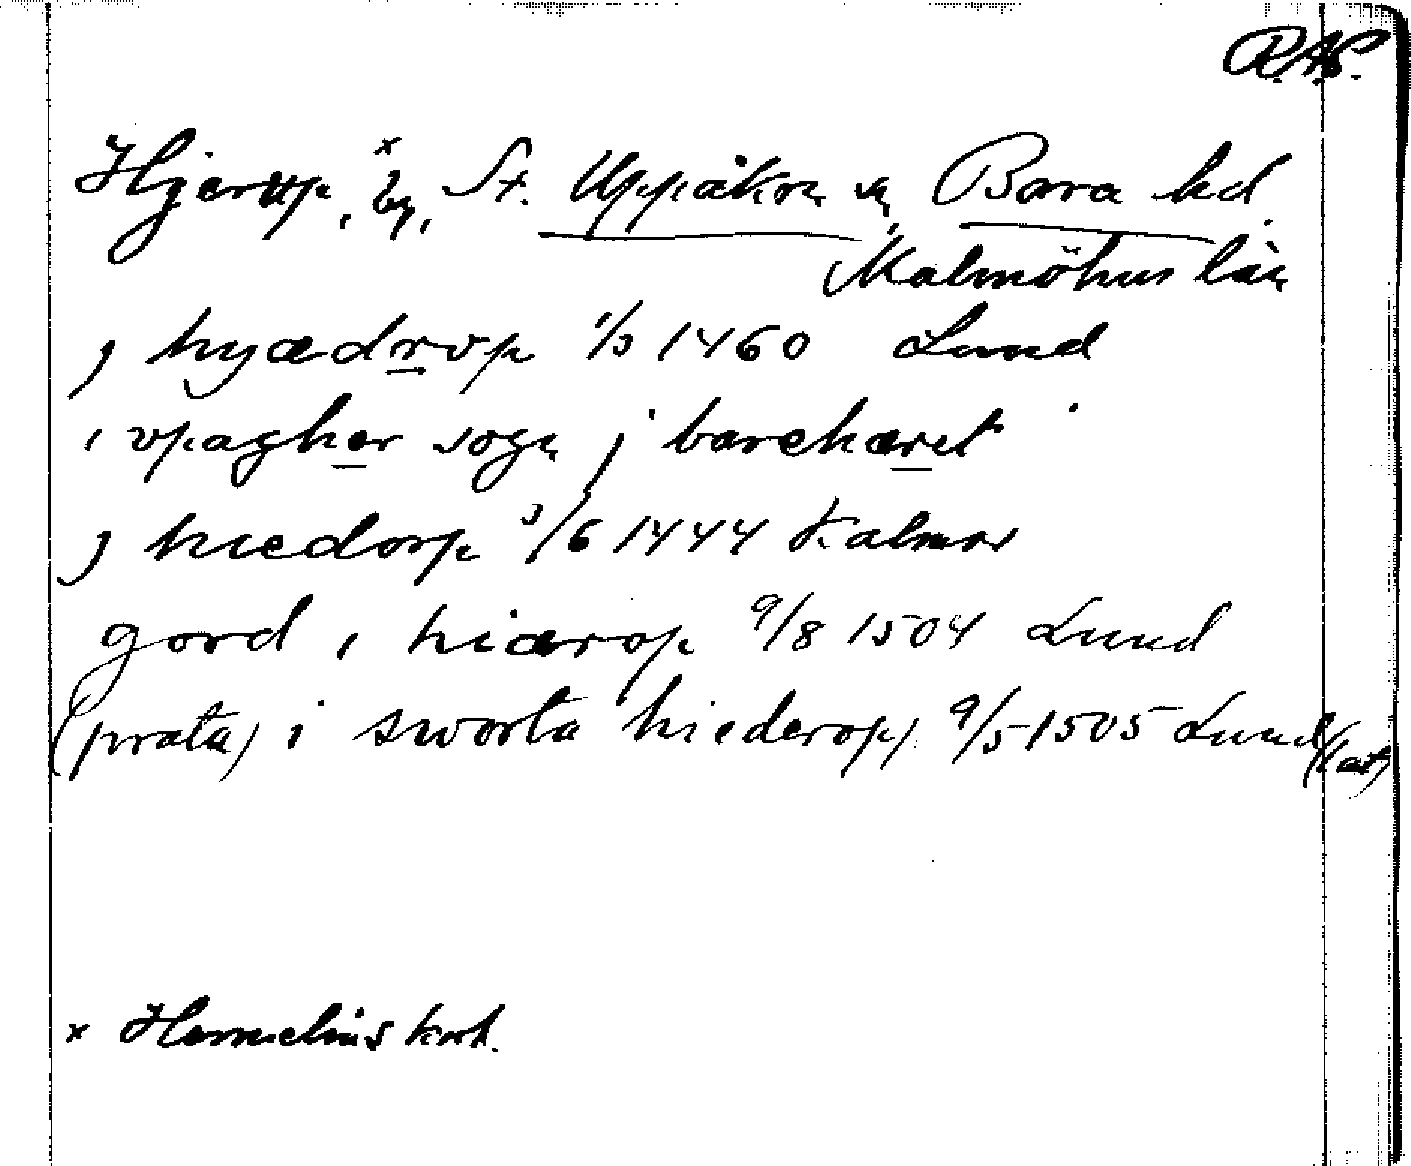 RAP.
Hjerup, by,ˣ St. Uppåkra sn, Bara hd.
Malmöhus län
j hyædrvp 1/3 1460 Lund
i vpagher sogn j barehæret
j hiedorp 3/6 1444 Kalmar
gord i hiærop 9/8 1504 Lund
(prata) i sworta hiederop 9/5 1505 Lund (lat)
x Hermelins krt.